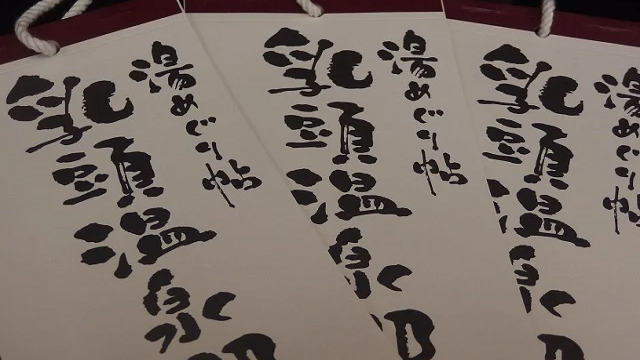 湯めぐり帖
乳頭温泉
湯めぐり帖
乳頭温泉
湯めぐり帖
乳頭温泉